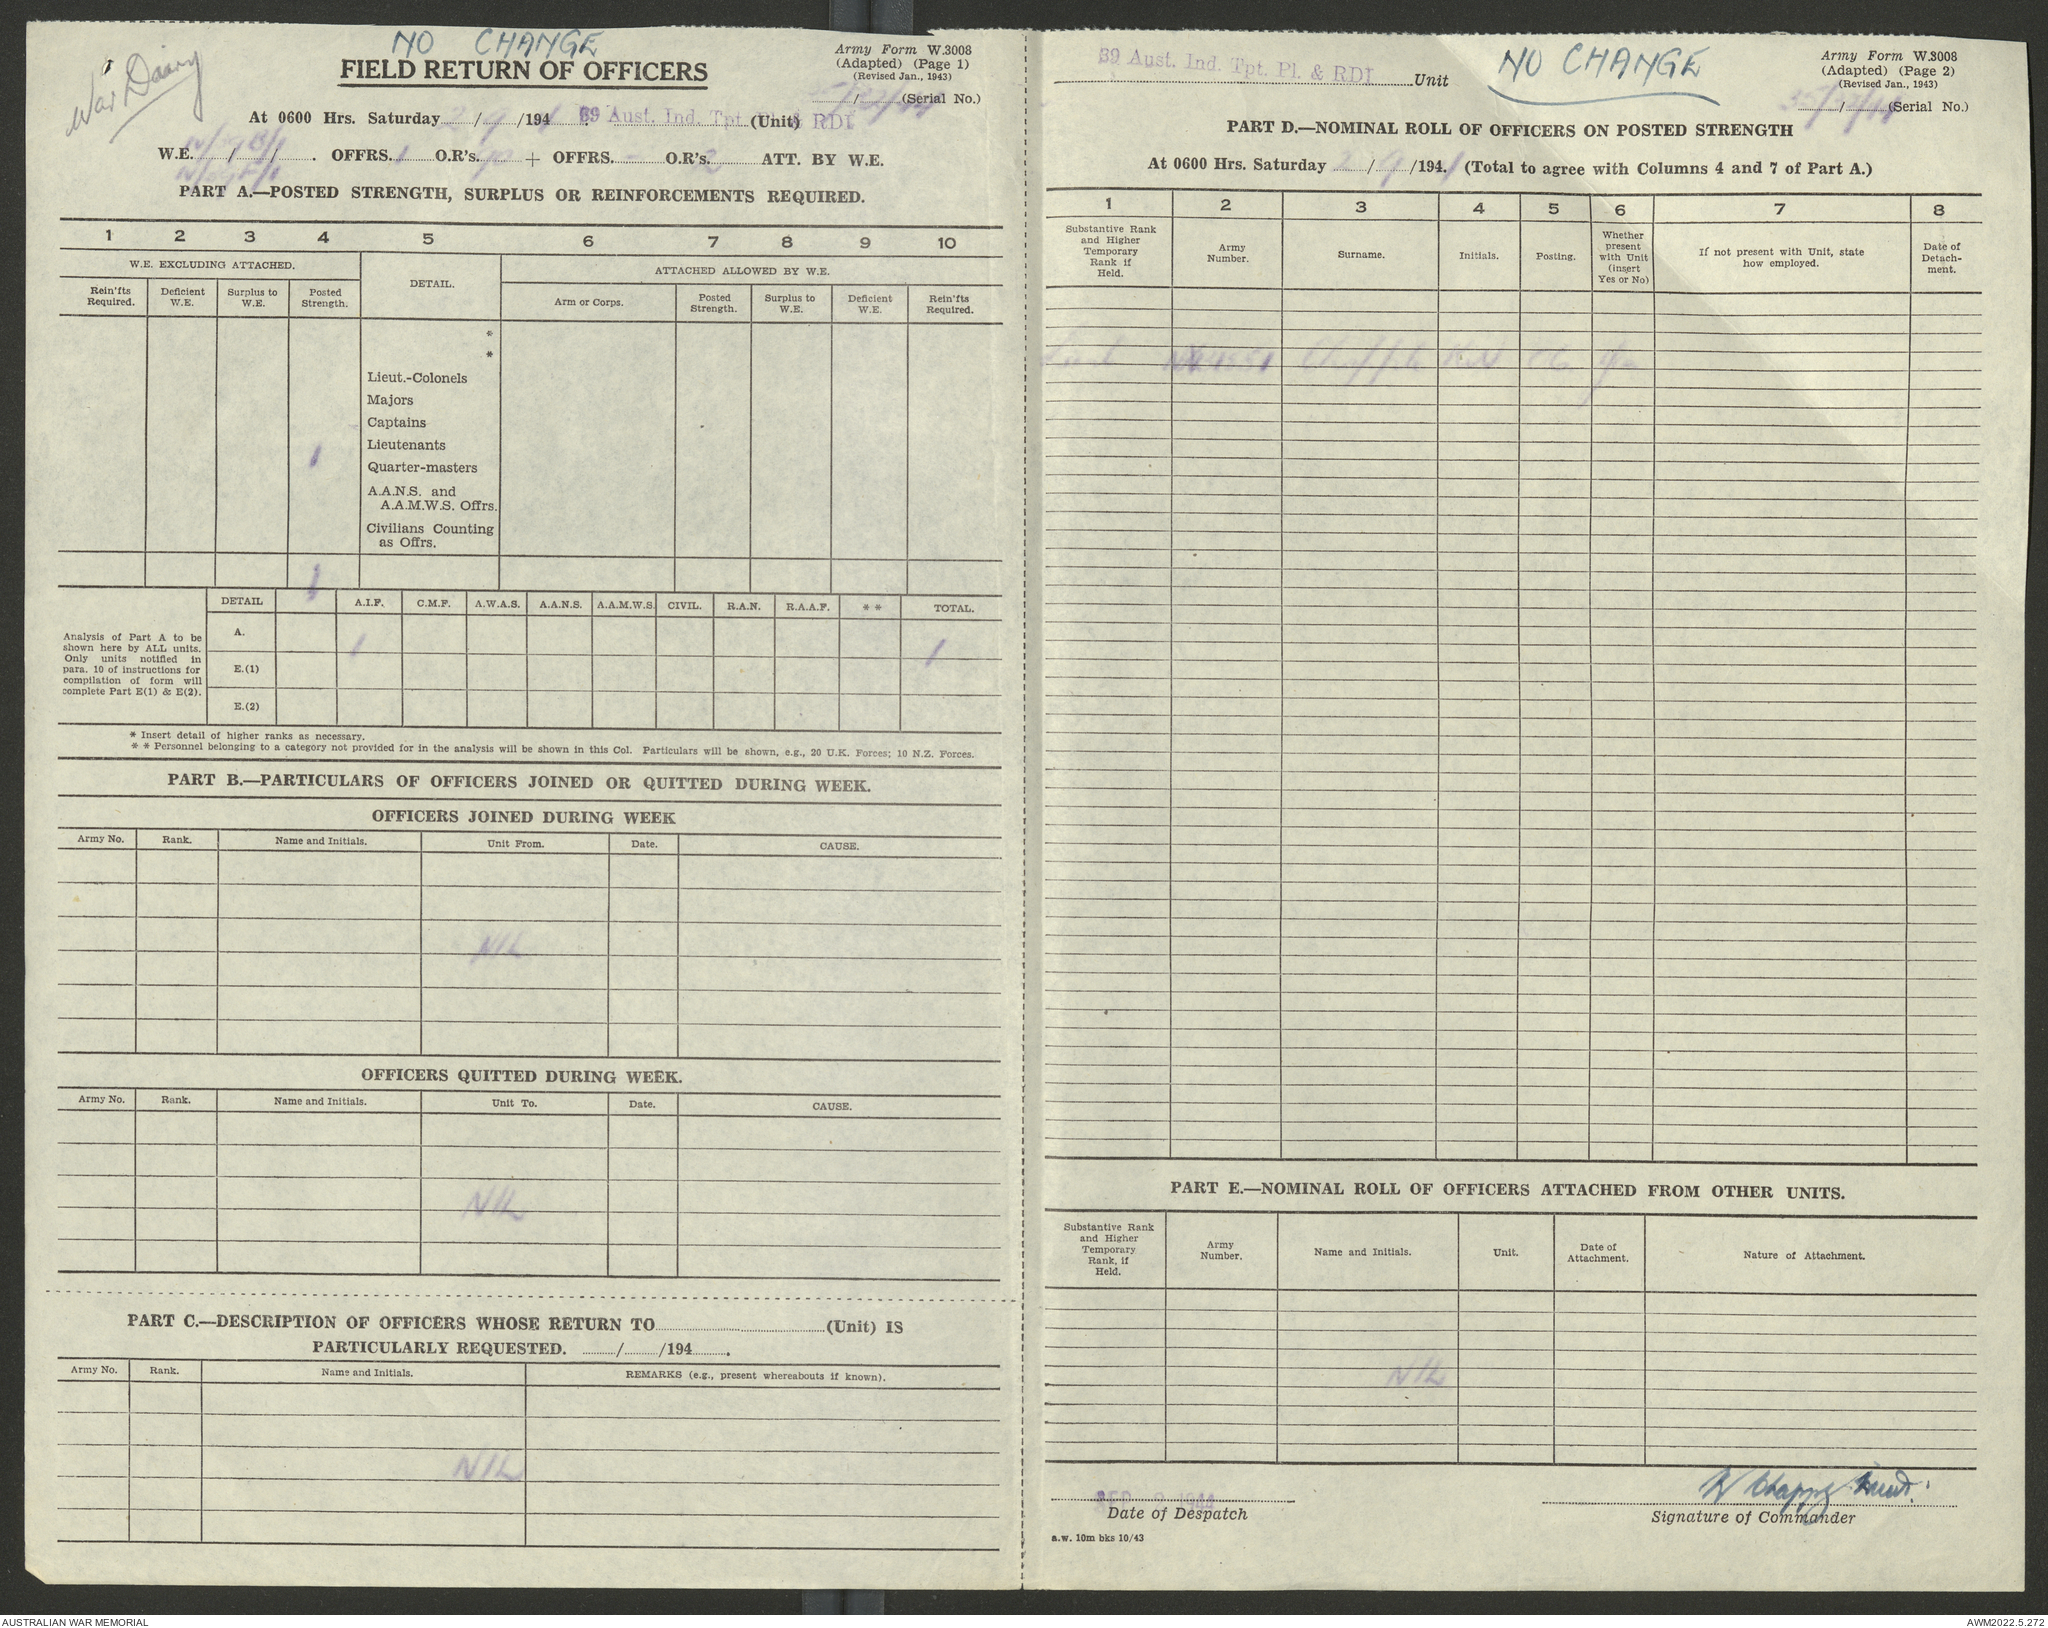 War Diary
NO CHANGE
FIELD RETURN OF OFFICERS
Army Form W.3008
(Adapted) (Page 1)
(Revised Jan., 1943)
/ (Serial No.)
At 0600 Hrs. Saturday 2/9/194 39 Aust. Ind. Tpt. (Unit) RDI
W.E. / / . OFFRS. 1 O.R's. + OFFRS. - O.R's. 2 ATT. BY W.E.
PART A.—POSTED STRENGTH, SURPLUS OR REINFORCEMENTS REQUIRED.
1 2 3 4 5 6 7 8 9 10
W.E. EXCLUDING ATTACHED. DETAIL. ATTACHED ALLOWED BY W.E.
Rein'fts Required. Deficient W.E. Surplus to W.E. Posted Strength. Arm or Corps. Posted Strength. Surplus to W.E. Deficient W.E. Rein'fts Required.
*
*
Lieut.-Colonels
Majors
Captains
1 Lieutenants
Quarter-masters
A.A.N.S. and
A.A.M.W.S. Offrs.
Civilians Counting
as Offrs.
1
DETAIL A.I.F. C.M.F. A.W.A.S. A.A.N.S. A.A.M.W.S. CIVIL. R.A.N. R.A.A.F. * * TOTAL.
Analysis of Part A to be
shown here by ALL units.
Only units notified in
para. 10 of instructions for
compilation of form will
complete Part E(1) & E(2).
A. 1 1
E.(1)
E.(2)
* Insert detail of higher ranks as necessary.
* * Personnel belonging to a category not provided for in the analysis will be shown in this Col. Particulars will be shown, e.g., 20 U.K. Forces; 10 N.Z. Forces.
PART B.—PARTICULARS OF OFFICERS JOINED OR QUITTED DURING WEEK.
OFFICERS JOINED DURING WEEK
Army No. Rank. Name and Initials. Unit From. Date. CAUSE.
NIL
OFFICERS QUITTED DURING WEEK.
Army No. Rank. Name and Initials. Unit To. Date. CAUSE.
NIL
PART C.—DESCRIPTION OF OFFICERS WHOSE RETURN TO (Unit) IS
PARTICULARLY REQUESTED. / /194 .
Army No. Rank. Name and Initials. REMARKS (e.g., present whereabouts if known).
NIL
39 Aust. Ind. Tpt. Pl. & RDI Unit
NO CHANGE
Army Form W.3008
(Adapted) (Page 2)
(Revised Jan., 1943)
/ (Serial No.)
PART D.—NOMINAL ROLL OF OFFICERS ON POSTED STRENGTH
At 0600 Hrs. Saturday 2/9/194 . (Total to agree with Columns 4 and 7 of Part A.)
1 2 3 4 5 6 7 8
Substantive Rank and Higher Temporary Rank if Held. Army Number. Surname. Initials. Posting. Whether present with Unit (insert Yes or No) If not present with Unit, state how employed. Date of Detachment.
Lieut Yes
PART E.—NOMINAL ROLL OF OFFICERS ATTACHED FROM OTHER UNITS.
Substantive Rank and Higher Temporary Rank, if Held. Army Number. Name and Initials. Unit. Date of Attachment. Nature of Attachment.
NIL
SEP 2 1944
Date of Despatch
Lieut.
Signature of Commander
a.w. 10m bks 10/43
AUSTRALIAN WAR MEMORIAL
AWM2022.5.272